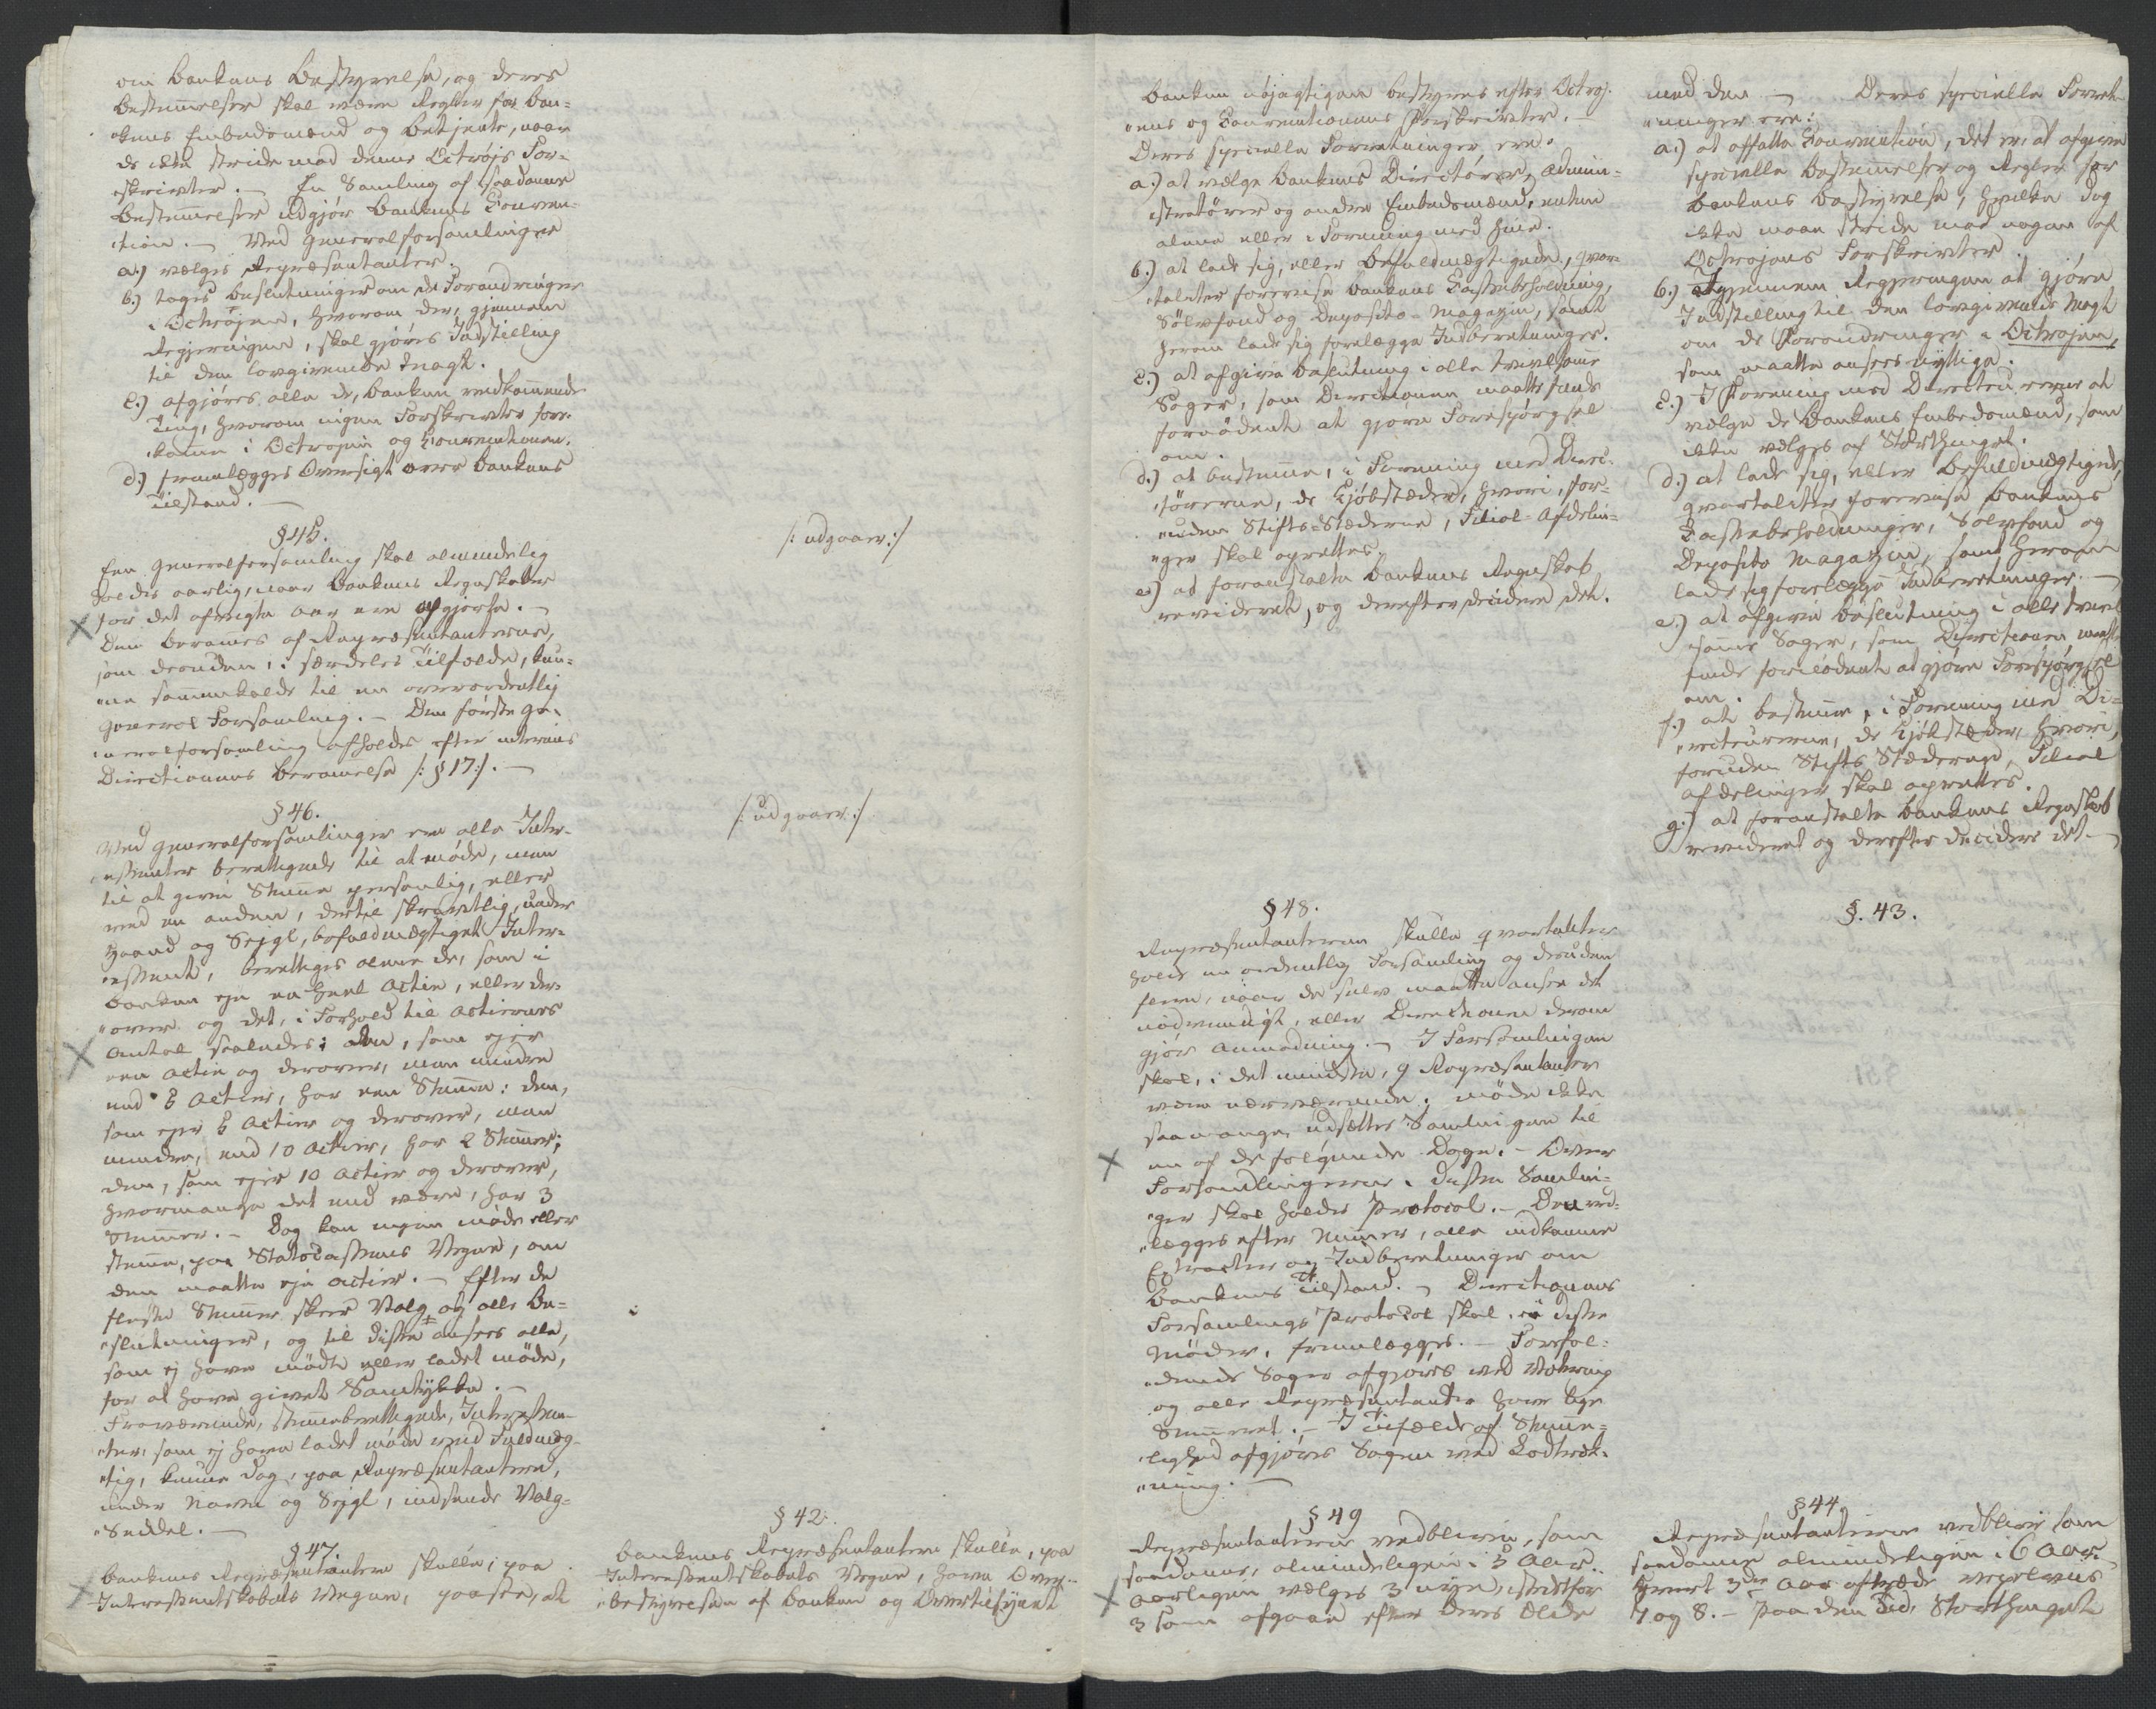 om Bankens Bestyrelse, og deres
Bestemelser skal være Regler for Ban-
"kens Embedsmænd og Betjente, naar
de ikke stride mod denne Octrojs For-
"skrivter. — En Samling af saadanne
Bestemelser udgjör Bankens Conven-
"tion. — Ved Generalforsamlinger
a.) vælges Repræsentanter.
b.) tages Beslutninger om de Forandringer
i Octrojen, hvorom der, gjennem
Regjeringen, skal gjöres Indstilling
til den lovgivende Magt.
c.) afgjöres alle de, Banken vedkomende
Ting, hvorom ingen Forskrivter fore-
"komme i Octrojen og Conventionen.
d.) fremlægges Oversigt over Bankens
Tilstand. —
§ 45.
Een Generalforsamling skal almindelig
holdes aarlig, naar Bankens Regnskaber
for det afvigte Aar ere afgjorte. —
Den berammes af Repræsentanterne,
som desuden, i særdeles Tilfælde, kun-
"ne sammenkalde til en overordentlig
General Forsamling. — Den förste Ge-
"neralforsamling afholdes efter interims
Directionens Berammelse /: § 17:/. —
§ 46.
Ved Generalforsamlinger ere alle Inter-
"essenter berettigede til at möde, men
til at give Stemme personlig, eller
ved en anden, dertil skrivtlig, under
Haand og Seigl, befuldmægtiget Inter-
"essent, berettiges alene de, som i
Banken eje en heel Actie, eller der-
"over og det, i Forhold til Actiernes
Antal saaledes: den, som ejer
een Actie og derover, men mindre
end 5 Actier, har een Stemme: den,
som ejer 5 Actier og derover, men
mindre, end 10 Actier, har 2 Stemmer;
den, som ejer 10 Actier og derover,
hvormange det end være, har 3
Stemmer. — Dog kan ingen möde eller
stemme, paa Statscassens Vegne, om
den maatte eje Actier. — Efter de
fleste Stemmer skeer Valg og alle Be-
"slutninger, og til disse ansees alle,
som ej have mödt eller ladet möde,
for at have givet Samtykke. —
Fraværende, stemmeberettigede, Interessen-
"ter, som ej have ladet möde ved Fuldmæg-
"tig, kunne dog, paa Repræsentantere,
under Navn og Seigl, indsende Valg-
"Seddel. —
§ 47.
Bankens Repræsentantere skulle, paa
Interessentskabets Vegne, paasee, at
/: udgaaer:/
/: udgaaer:/
§ 42.
Bankens Repræsentantere skulle, paa
Interessentskabets Vegne, have Over-
"bestyrelsen af Banken og Overtilsynet
Banken nöjagtigen bestyres efter Octroj-
"ens og Conventionens Forskrivter. —
Deres specielle Forretninger ere:
a.) at vælge Bankens Directörer, Admini-
"stratörer og andre Embedsmænd, enten
alene eller i Forening med hine.
b.) at lade sig, eller Befuldmægtigede, qvar-
"taliter forevise Bankens Cassebeholdning,
Sölvfond og Deposito-Magazin, samt
herom lade sig forelægge Indberetninger.
c.) at afgive Beslutning i alle tvivlsomme
Sager, som Directionen maatte finde
fornödent at gjöre Forespörgsel
om.
d.) at bestemme, i Forening med Direc-
"törerne, de Kjöbstæder, hvori, for-
"uden Stifts-Stæderne, Filial-Afdelin-
"ger skal oprettes.
e.) at foranstalte Bankens Regnskab
revideret, og derefter decidere det.
§ 48.
Repræsentanterne skulle qvartaliter
holde en ordentlig Forsamling og desuden
flere, naar de selv maatte ansee det
nödvendigt, eller Directionen derom
gjör Anmodning. — I Forsamlingen
skal, i det mindste, 9 Repræsentanter
være nærværende; möde ikke
saamange, udsættes Samlingen til
en af de fölgende Dage. — Over
Forhandlingerne i disse Samlin-
"ger skal holdes Protocol. — Den ved-
"lægges efter Nummer, alle indkomne
Extracter og Indberetninger om
Bankens Tilstand. — Directionens
Forsamlings Protocol skal, i disse
Möder, fremlægges. — Forefal-
"dende Sager afgjöres ved Votering
og alle Repræsentanter have lige
Stemmeret. — I Tilfælde af Stemme-
"lighed afgjöres Sagen ved Lodtræk-
"ning. —
§ 49
Repræsentanterne vedblive, som
saadanne, almindeligen i 5 Aar.
Aarligen vælges 3 nye, istedetfor
3 som afgaae efter deres Ælde
med den — Deres specielle Forret-
"ninger ere:
a.) at affatte Convention, det er: at afgive
specielle Bestemmelser og Regler for
Bankens Bestyrelse, hvilke dog
ikke maae stride mod nogen af
Octrojens Forskrivter.
b.) Igjennem Regjeringen at gjöre
Indstilling til den lovgivende Magt
om de Forandringer i Octrojen,
som maatte ansees nyttige.
c.) I Forening med Directeurerne at
vælge de Bankens Embedsmænd, som
ikke vælges af Storthinget.
d.) at lade sig, eller Befuldmægtigede,
qvartaliter forevise Bankens
Cassebeholdninger, Sölvfond og
Deposito Magazin, samt herom
lade sig forelægge Indberetninger. —
e.) at afgive Beslutning i alle tvivl-
"somme Sager, som Directionen maatte
finde fornödent at gjöre Forespörgsel
om.
f.) at bestemme, i Forening med Di-
"recteurerne, de Kjöbstæder, hvori,
foruden Stifts Stæderne, Filial
afdelinger skal oprettes.
g.) at foranstalte Bankens Regnskab
revideret og derefter decidere det —
§. 43.
§ 44
Repræsentanterne vedblive som
saadanne almindeligen i 6 Aar.
Hvert 3die Aar aftræde vexelviis
7 og 8. — Paa den Tid, Storthinget